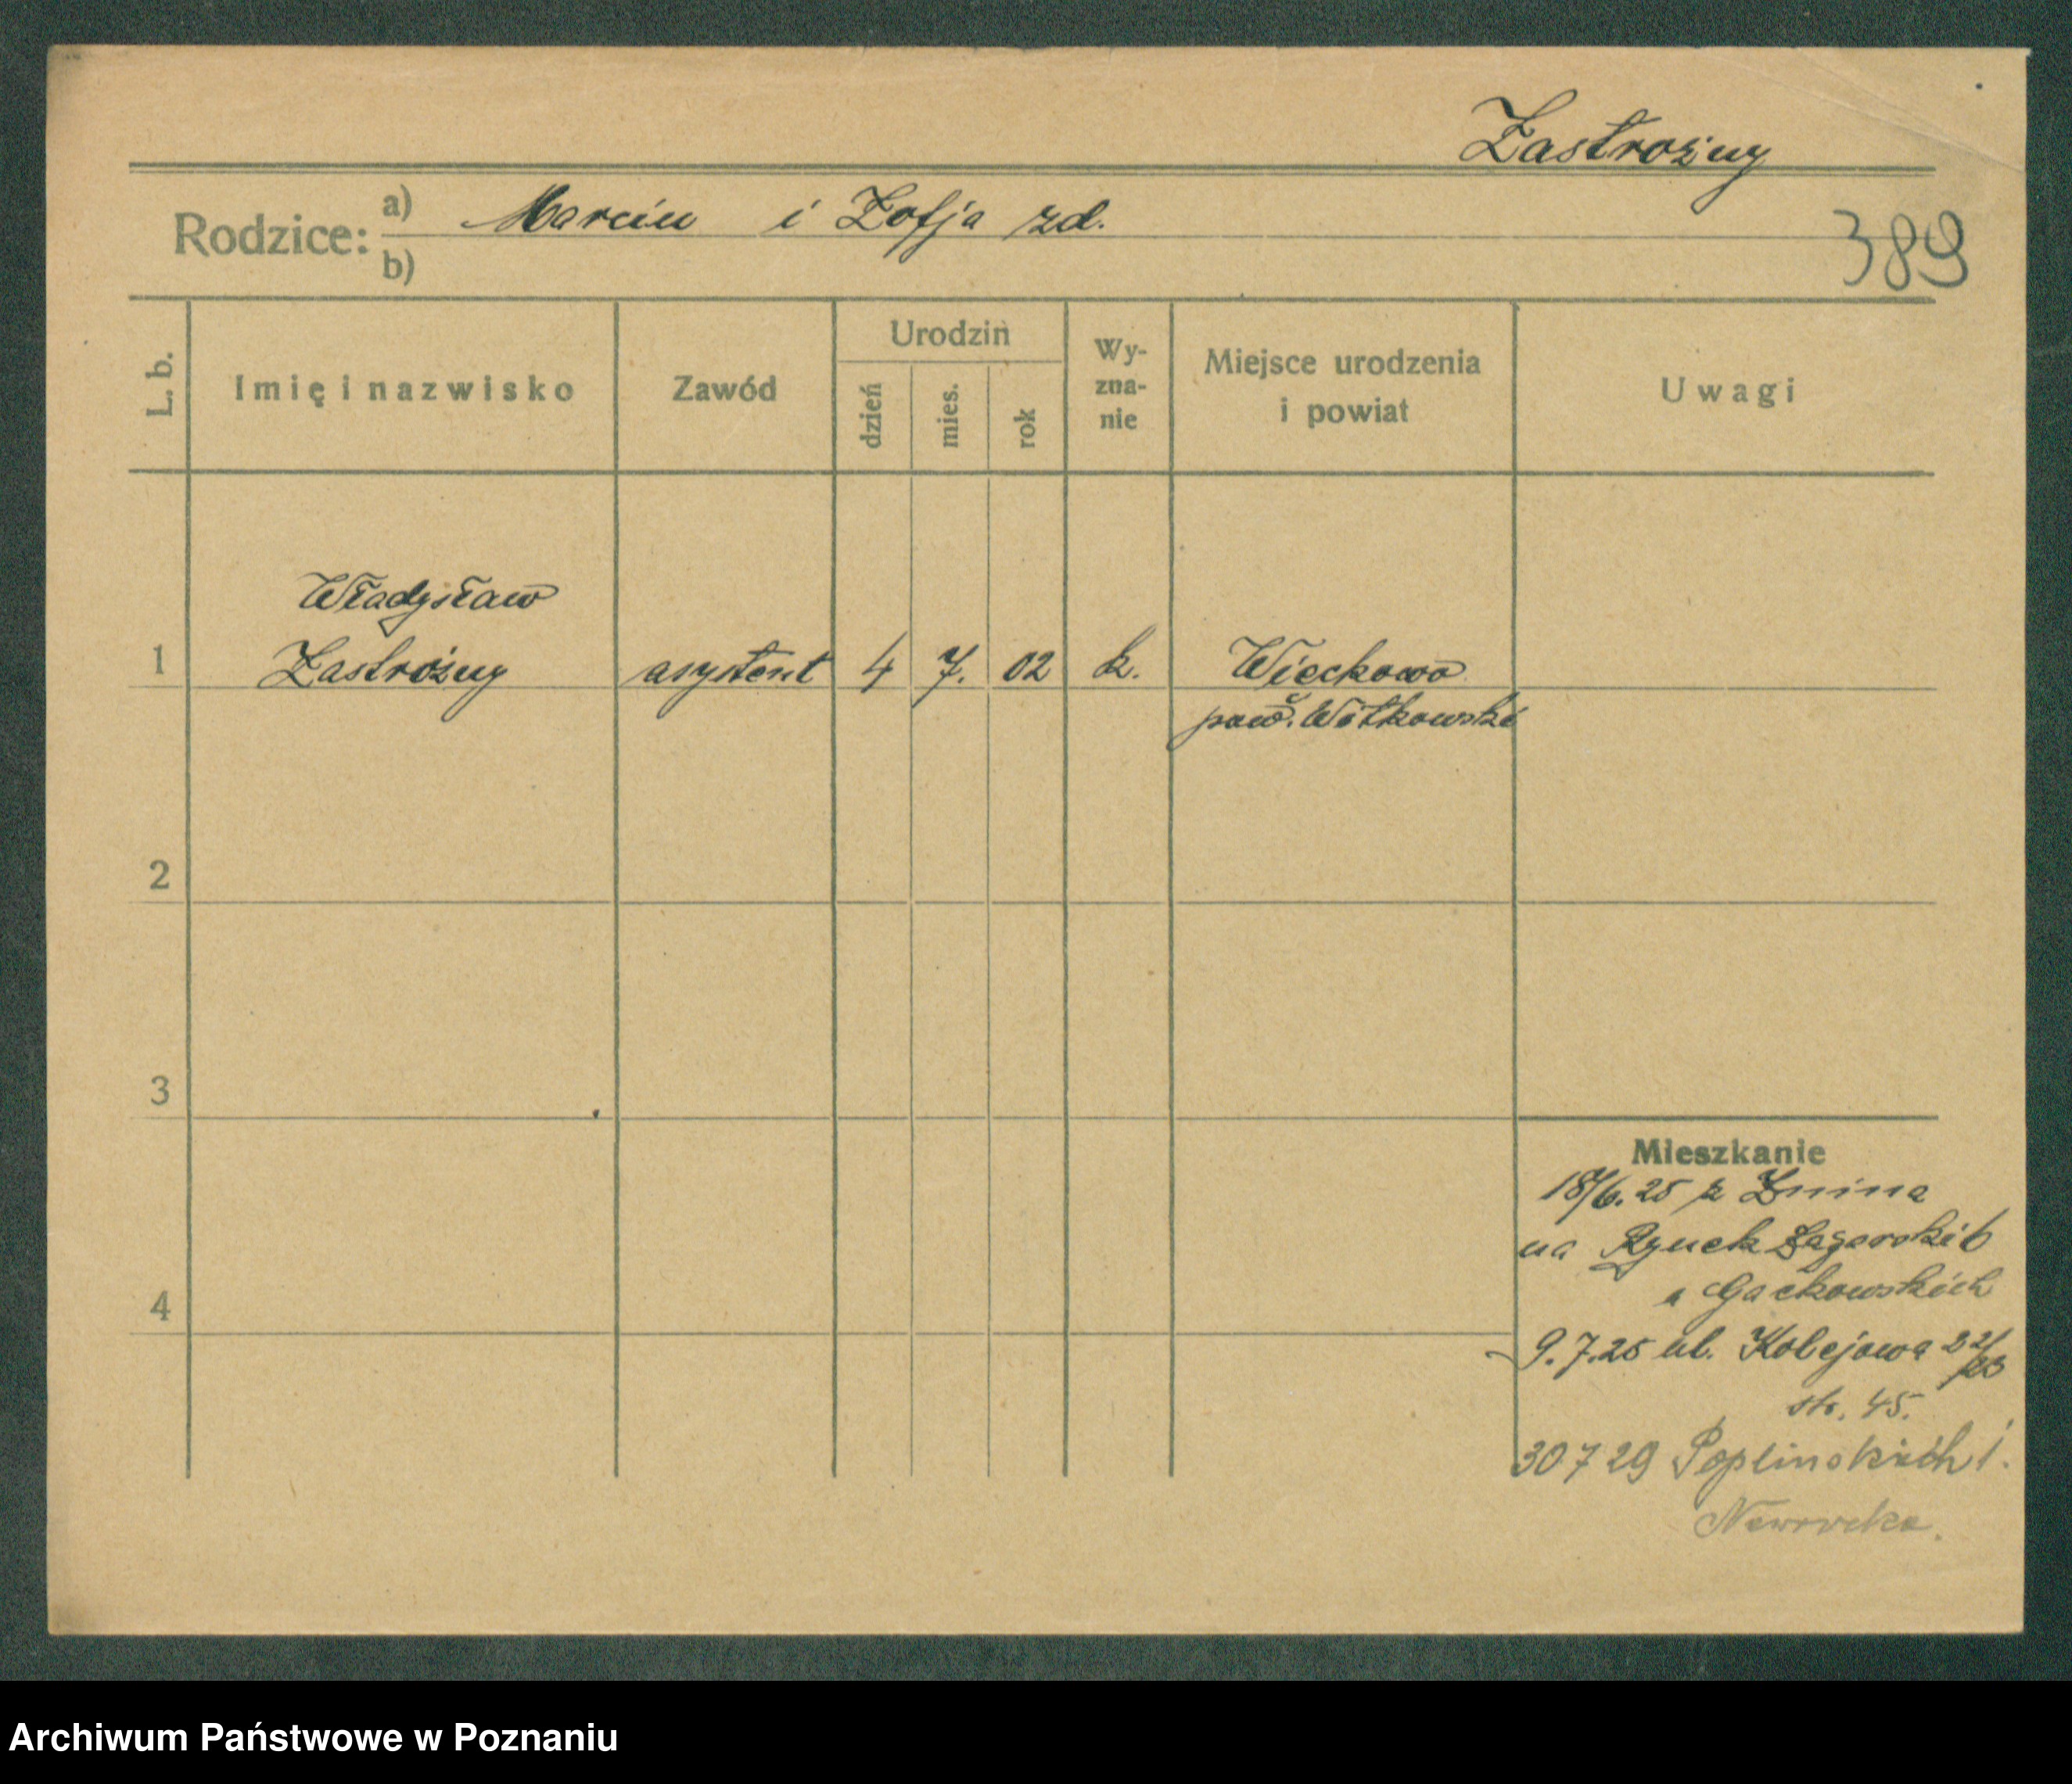 Zastrożny
Rodzice: a) Marcin i Zofja zd.
b)
389
L. b. Imię i nazwisko Zawód Urodzin dzień mies. rok Wy-zna-nie Miejsce urodzenia i powiat Uwagi
Władysław
1 Zastrożny asystent 4 7. 02 k. Więckowo
pow. Witkowski
2
3
Mieszkanie
18/6. 25 z Żnina
na Rynek Łazarski 6
Gackowskich
4
9. 7. 25 ul. Kolejowa
str. 45.
30 7 29 Poplinskich 1.
Archiwum Państwowe w Poznaniu